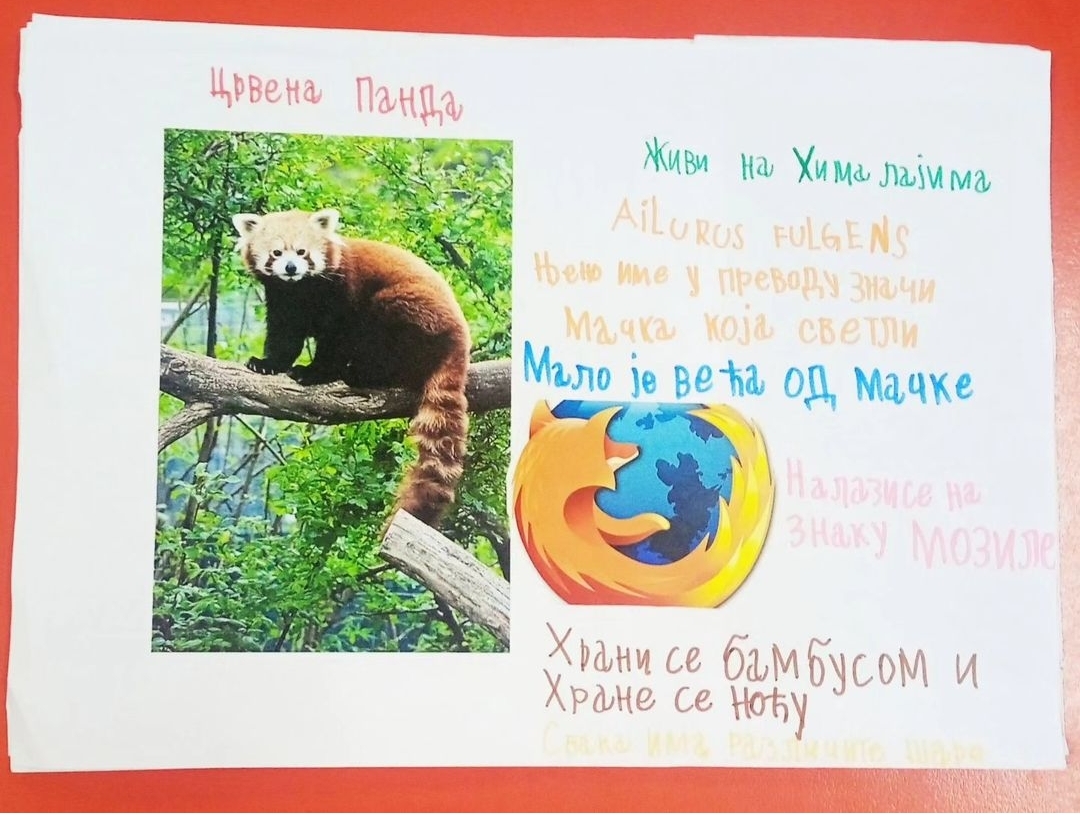 Црвена Панда
Живи на Хималајима
AiLURUS FULGENS
Њено име у преводу значи
Мачка која светли
Мало је већа од мачке
Налазисе на
знаку МОЗИЛе
Храни се бамбусом и
Хране се ноћу
Свака има различите шаре